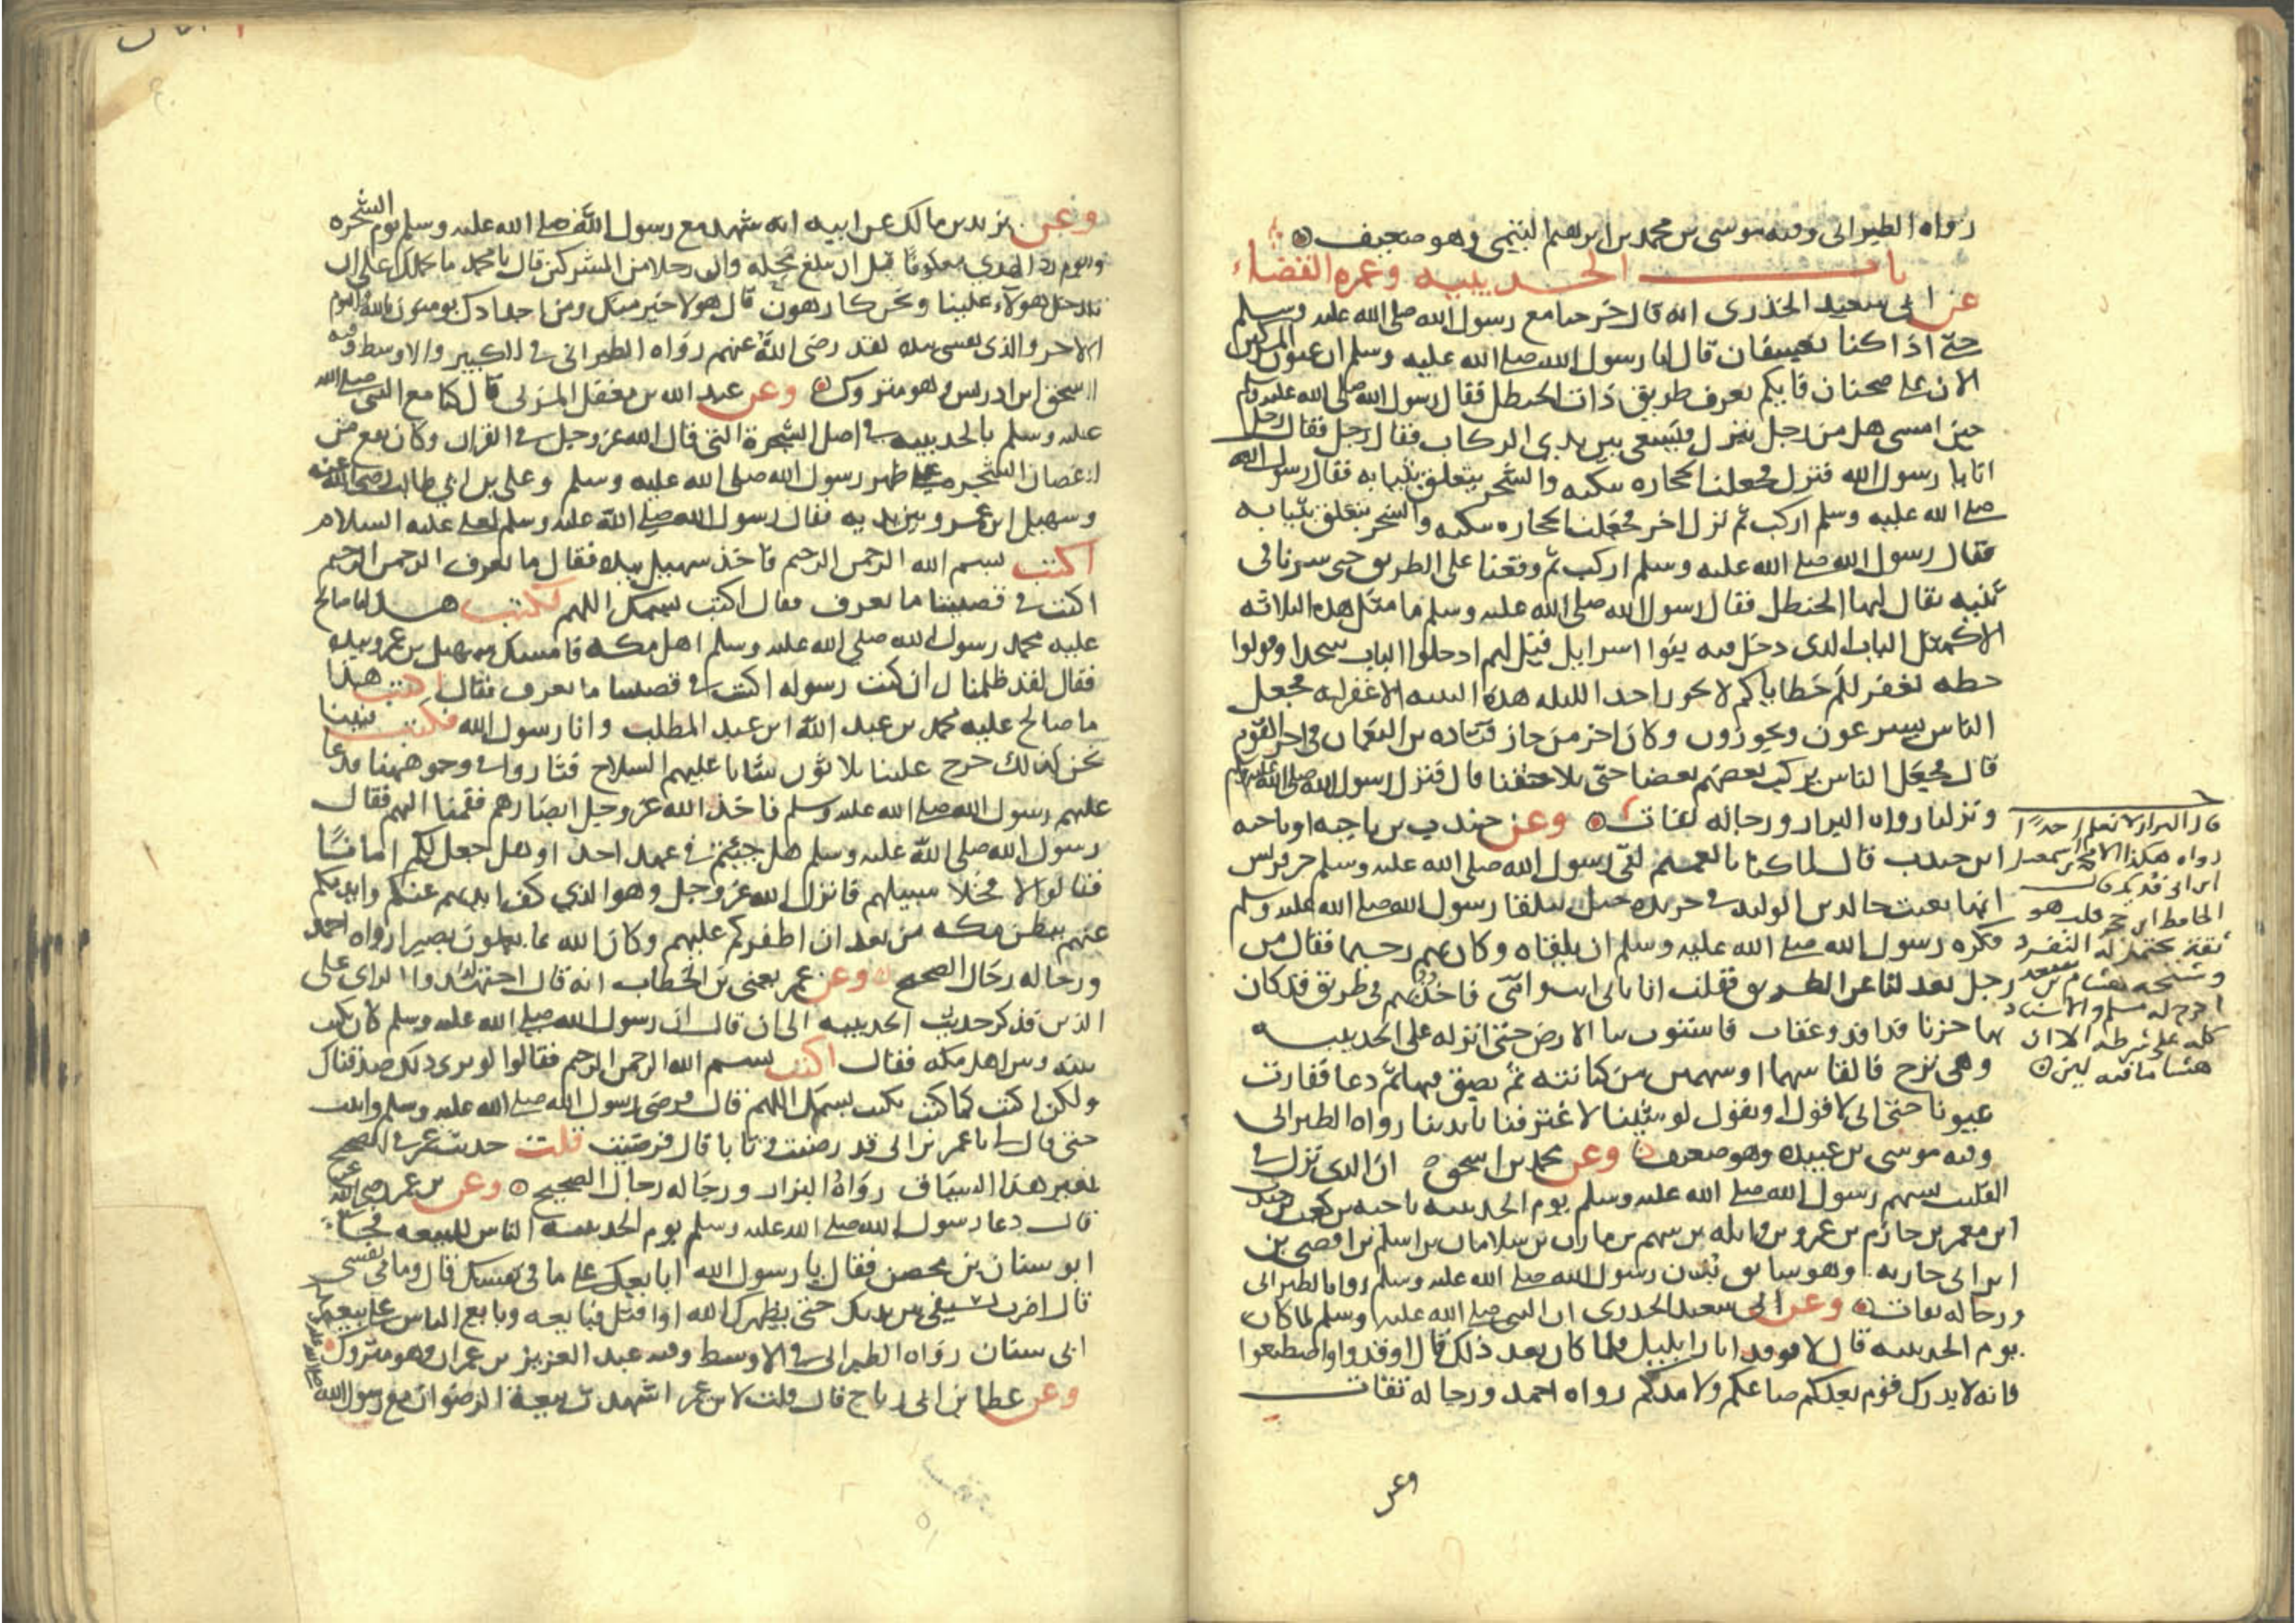 رواه الطبراني وفيه موسى بن محمد بن ابرهيم التيمي وهو ضعيف
باب الحديبيه وعمره القضاء
عن ابي سعيد الخذرى انه قال خرجنا مع رسول الله صلى الله عليه وسلم
حتى اذا كنا بعسفان قال لنا رسول الله صلى الله عليه وسلم ان عيون المشركين
الان على ضجنان فايكم يعرف طريق ذات الحنظل فقال رسول الله صلى الله عليه وسلم
حين امسى هل من رجل ينزل فيسعى بين يدي الركاب فقال رجل فقال رجل
انا يا رسول الله فنزل فجعلت الحجاره تنكبه والشجر يتعلق بثيابه فقال رسول الله
صلى الله عليه وسلم اركب ثم نزل اخر فجعلت الحجاره تنكبه والشجر يتعلق بثيابه
فقال رسول الله صلى الله عليه وسلم اركب ثم وقعنا على الطريق حتى سرنا في
ثنيه يقال لها الحنظل فقال رسول الله صلى الله عليه وسلم ما مثل هذه الثنيه
الا كمثل الباب الذى دخل فيه بنوا اسرايل قيل لهم ادخلوا الباب سجدا وقولوا
حطه نغفر لكم خطاياكم لا يجوز احد الليله هذه الثنيه الا غفر له فجعل
الناس يسرعون ويجوزون وكان اخر من جاز قتاده بن النعمان في اخر القوم
قال فجعل الناس يركب بعضهم بعضا حتى تلاحقنا قال فنزل رسول الله صلى الله عليه وسلم
ونزلنا رواه البزار ورجاله ثقات وعن جندب بن ناجيه او ناجيه
ابن جندب قال لما كنا بالغميم لقى رسول الله صلى الله عليه وسلم خبر قريش
انها بعثت خالد بن الوليد في جريده خيل يتلقا رسول الله صلى الله عليه وسلم
فكره رسول الله صلى الله عليه وسلم ان يلقاه وكان بهم رحيما فقال من
رجل يعدلنا عن الطريق فقلت انا بابي انت وامي فاخذت بهم في طريق قد كان
بها حزنا فدافد وعقاب فاستوت بنا الارض حتى انزله على الحديبيه
وهى نزح فالقا سهما او سهمين من كنانته ثم بصق فيها ثم دعا ففارت
عيونا حتى اني لاقول او نقول لو شينا لاغترفنا بايدينا رواه الطبراني
وفيه موسى بن عبيده وهو ضعيف وعن محمد بن اسحق ان الذى نزل في
القليب بسهم رسول الله صلى الله عليه وسلم يوم الحديبيه ناجيه بن كعب
ابن معمر بن حازم بن عمرو بن وايله بن سهم بن مازن بن سلامان بن اسلم بن افصى بن
ابن ابي حارثه وهو سايق بدن رسول الله صلى الله عليه وسلم رواه الطبراني
ورجاله ثقات وعن ابي سعيد الخدرى ان النبي صلى الله عليه وسلم لما كان
يوم الحديبيه قال لا توقدوا نارا بليل فلما كان بعد ذلك قال اوقدوا واصطنعوا
فانه لا يدرك قوم بعدكم صاعكم ولا مدكم رواه احمد ورجاله ثقات
وعن
قال البزار لا نعلم احدًا
رواه هكذا الا محمد بن اسمعيل
ابن ابي فديك قال
الحافظ ابن حجر قلت هو
ثقة يحتمل له التفرد
وشيخه هشام بن سعد
اخرج له مسلم والاسناد
كله على شرطه الا ان
هشاما فيه لين
وعن يزيد بن مالك عن ابيه انه شهد مع رسول الله صلى الله عليه وسلم يوم الشجره
ويوم رد الهدي معكوفًا قبل ان يبلغ محله وان رجلا من المشركين قال يا محمد ما حملك على ان
تدخل هولآء علينا ونحن كارهون قال هولا خير منك ومن اجدادك يومنون بالله واليوم
الاخر والذى نفسي بيده لقد رضي الله عنهم رواه الطبراني في الكبير والاوسط وفيه
اسحق ابن ادريس وهو متروك وعن عبد الله بن مغفل المزني قال كنا مع النبي صلى الله
عليه وسلم بالحديبيه في اصل الشجرة التي قال الله عز وجل في القران وكان يقع من
اغصان الشجره على ظهر رسول الله صلى الله عليه وسلم وعلى بن ابي طالب رضي الله عنه
وسهيل ابن عمرو بين يديه فقال رسول الله صلى الله عليه وسلم لعلى عليه السلام
اكتب بسم الله الرحمن الرحيم فاخذ سهيل بيده فقال ما نعرف الرحمن الرحيم
اكتب في قضيتنا ما نعرف فقال اكتب باسمك اللهم فكتب هذا ما صالح
عليه محمد رسول الله صلى الله عليه وسلم اهل مكه فامسك سهيل بن عمرو بيده
فقال لقد ظلمناك ان كنت رسوله اكتب في قضيتنا ما نعرف فقال اكتب هذا
ما صالح عليه محمد بن عبد الله ابن عبد المطلب وانا رسول الله فكتب فبينا
نحن كذلك خرج علينا ثلاثون شابا عليهم السلاح فثاروا في وجوهنا فدعا
عليهم رسول الله صلى الله عليه وسلم فاخذ الله عز وجل ابصارهم فقمنا اليهم فقال
رسول الله صلى الله عليه وسلم هل جئتم في عهد احد او هل جعل لكم امانًا
فقالوا لا فخلا سبيلهم فانزل الله عز وجل وهو الذي كف ايديهم عنكم وايديكم
عنهم ببطن مكه من بعد ان اظفركم عليهم وكان الله بما يعملون بصيرا رواه احمد
ورجاله رجال الصحيح وعن عمر يعني بن الخطاب انه قال اتهموا الراى على
الدين فذكر حديث الحديبيه الى ان قال ان رسول الله صلى الله عليه وسلم كان يكتب
بينه وبين اهل مكه فقال اكتب بسم الله الرحمن الرحيم فقالوا لو نرى ذلك صدقناك
ولكن اكتب كما كنت تكتب بسمك اللهم قال فرضي رسول الله صلى الله عليه وسلم وابيت
حتى قال لي يا عمر تراني قد رضيت وتابا قال فرضيت قلت حديث عمر في الصحيح
بغير هذا السياق رواه البزار ورجاله رجال الصحيح وعن بن عمر رضي الله عنه
قال دعا رسول الله صلى الله عليه وسلم يوم الحديبيه الناس للبيعه فجاء
ابو سنان بن محصن فقال يا رسول الله ابايعك على ما في نفسك قال وما في نفسي
قال اضرب بسيفي بين يديك حتى يظهرك الله او اقتل فبايعه وبايع الناس على بيعة
ابي سنان رواه الطبراني في الاوسط وفيه عبد العزيز بن عمران وهو متروك
وعن عطا بن ابي رباح قال قلت لابن عمر اشهدت بيعة الرضوان مع رسول الله